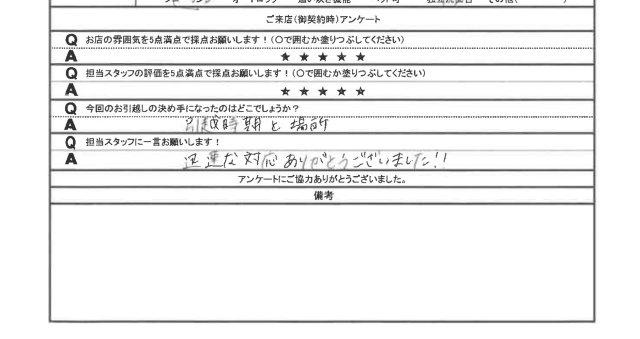 ご来店(御契約時)アンケート
Q お店の雰囲気を5点満点で採点お願いします！(〇で囲むか塗りつぶしてください)
A ★ ★ ★ ★ ★
Q 担当スタッフの評価を5点満点で採点お願いします！(〇で囲むか塗りつぶしてください)
A ★ ★ ★ ★ ★
Q 今回のお引越しの決め手になったのはどこでしょうか？
A 引越時期と場所
Q 担当スタッフに一言お願いします！
A 迅速な対応ありがとうございました!!
アンケートにご協力ありがとうございました。
備考